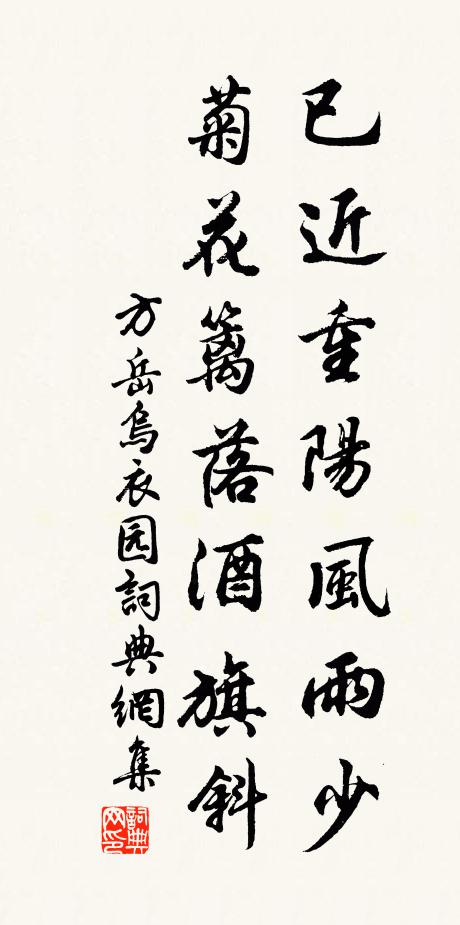 已近重陽風雨少
菊花籬落酒旗斜
方岳烏衣园詞典網集
詞典
网印